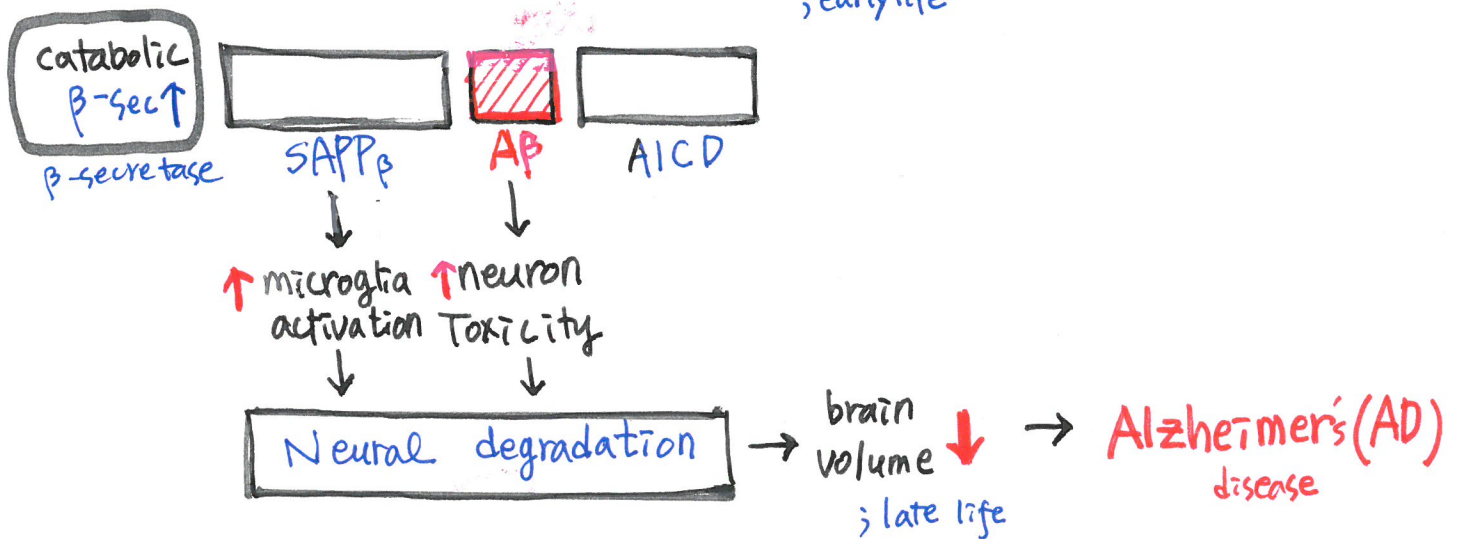 ; early life
catabolic
β-sec↑
β-secretase
SAPPβ
Aβ
AICD
↓
↓
↑ microglia
activation
↑ neuron
Toxicity
↓
↓
Neural degradation
→
brain
volume ↓
; late life
→
Alzheimer's (AD)
disease